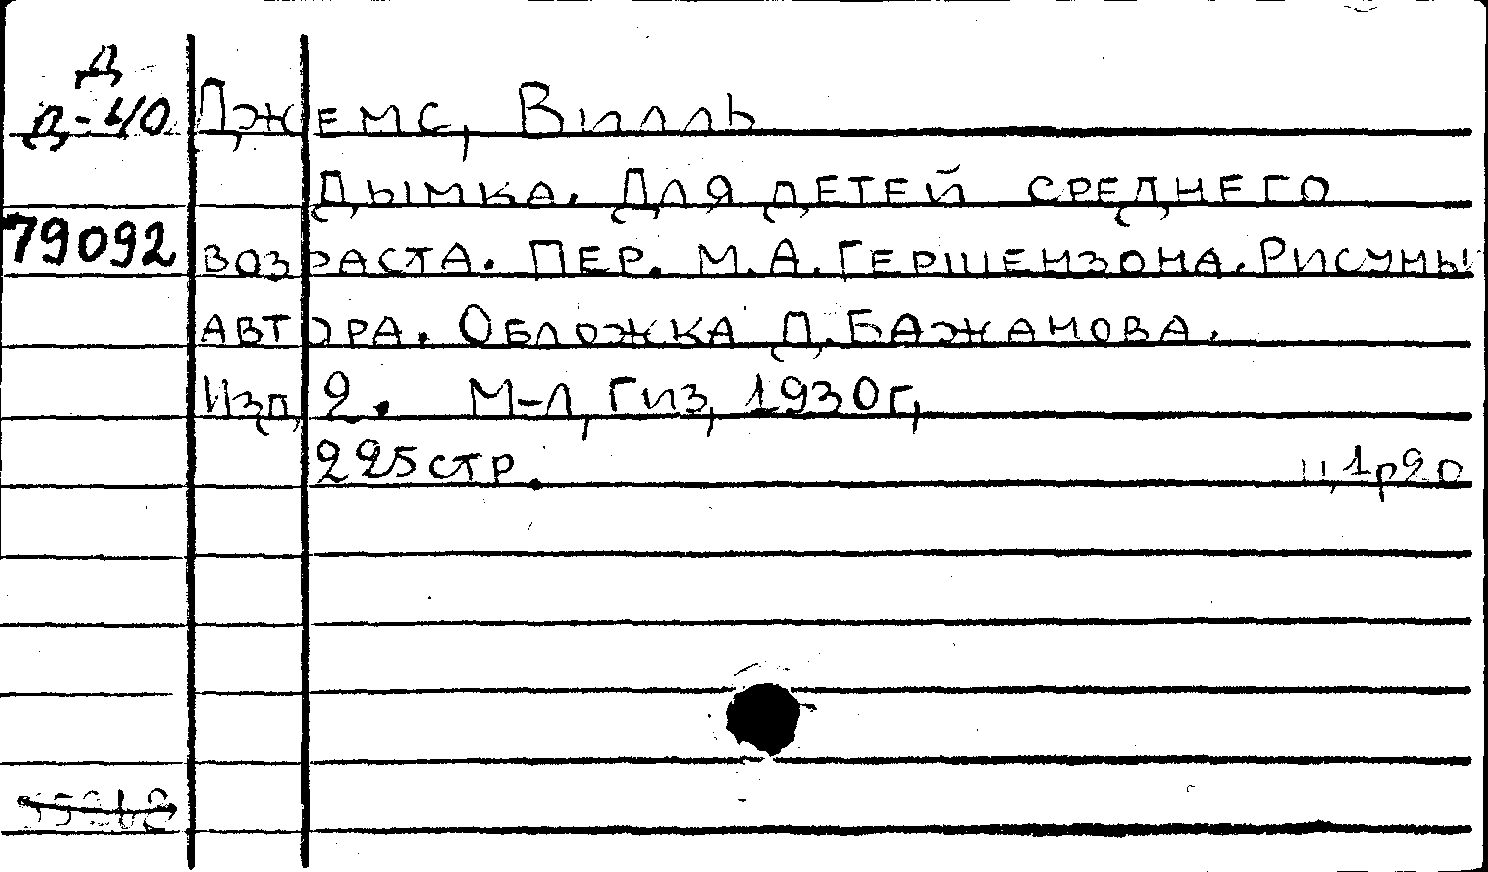 Д
Д-40 Джемс, Вилль
Дымка. Для детей среднего
79092 возраста. Пер. М.А.Гершензона. Рисунки
автора. Обложка Д.Бажанова.
Изд. 2. М-Л, Гиз, 1930г,
225стр. ц,1р20